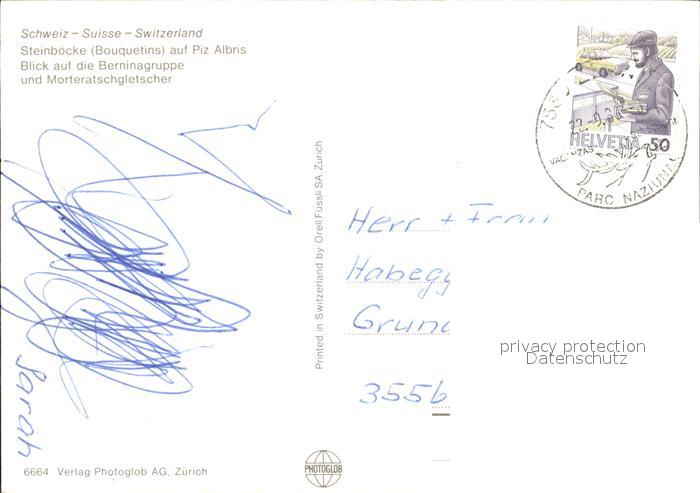 Schweiz – Suisse – Switzerland
Steinböcke (Bouquetins) auf Piz Albris
Blick auf die Berninagruppe
und Morteratschgletscher
Sarah
6664 Verlag Photoglob AG, Zürich
Printed in Switzerland by Orell Füssli SA, Zürich
PHOTOGLOB
HELVETIA 50
PARC NAZIUNAL
Herr + Frau
Habegg
Grun
3556
privacy protection
Datenschutz